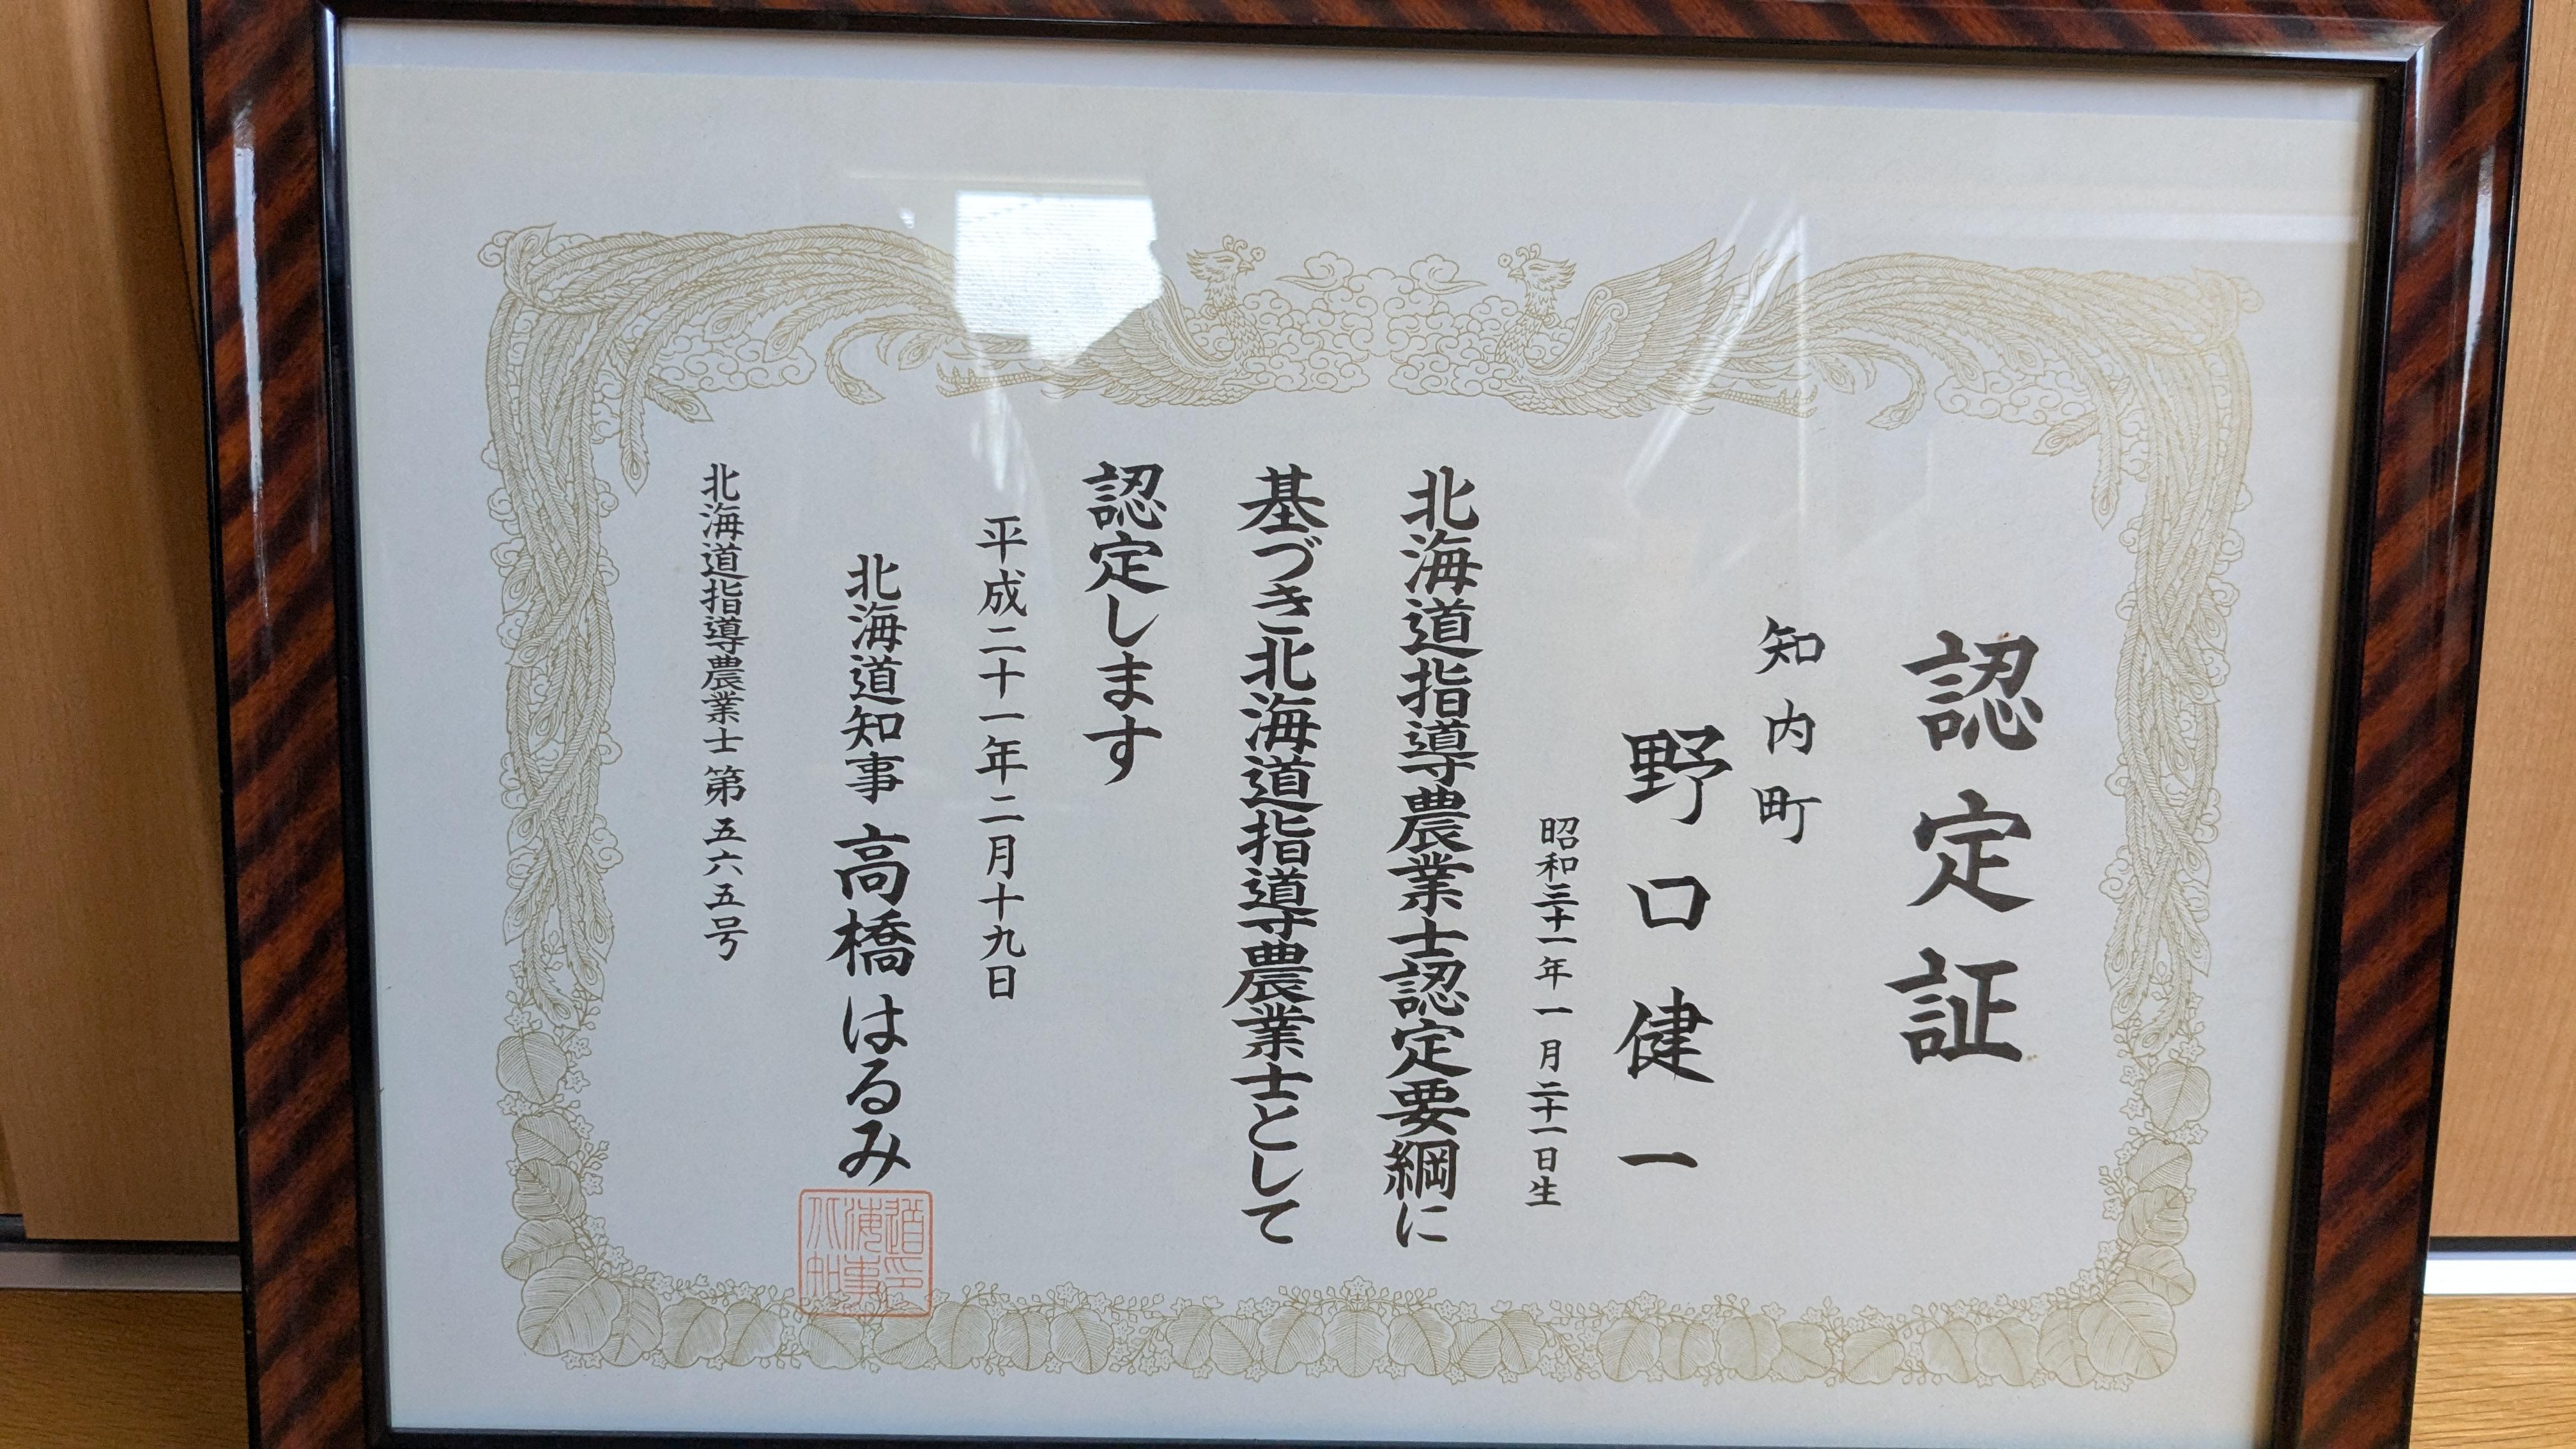 認定証
知内町
野口健一
昭和三十一年一月二十一日生
北海道指導農業士認定要綱に
基づき北海道指導農業士として
認定します
平成二十一年二月十九日
北海道知事 高橋はるみ
北海道指導農業士 第五六五号